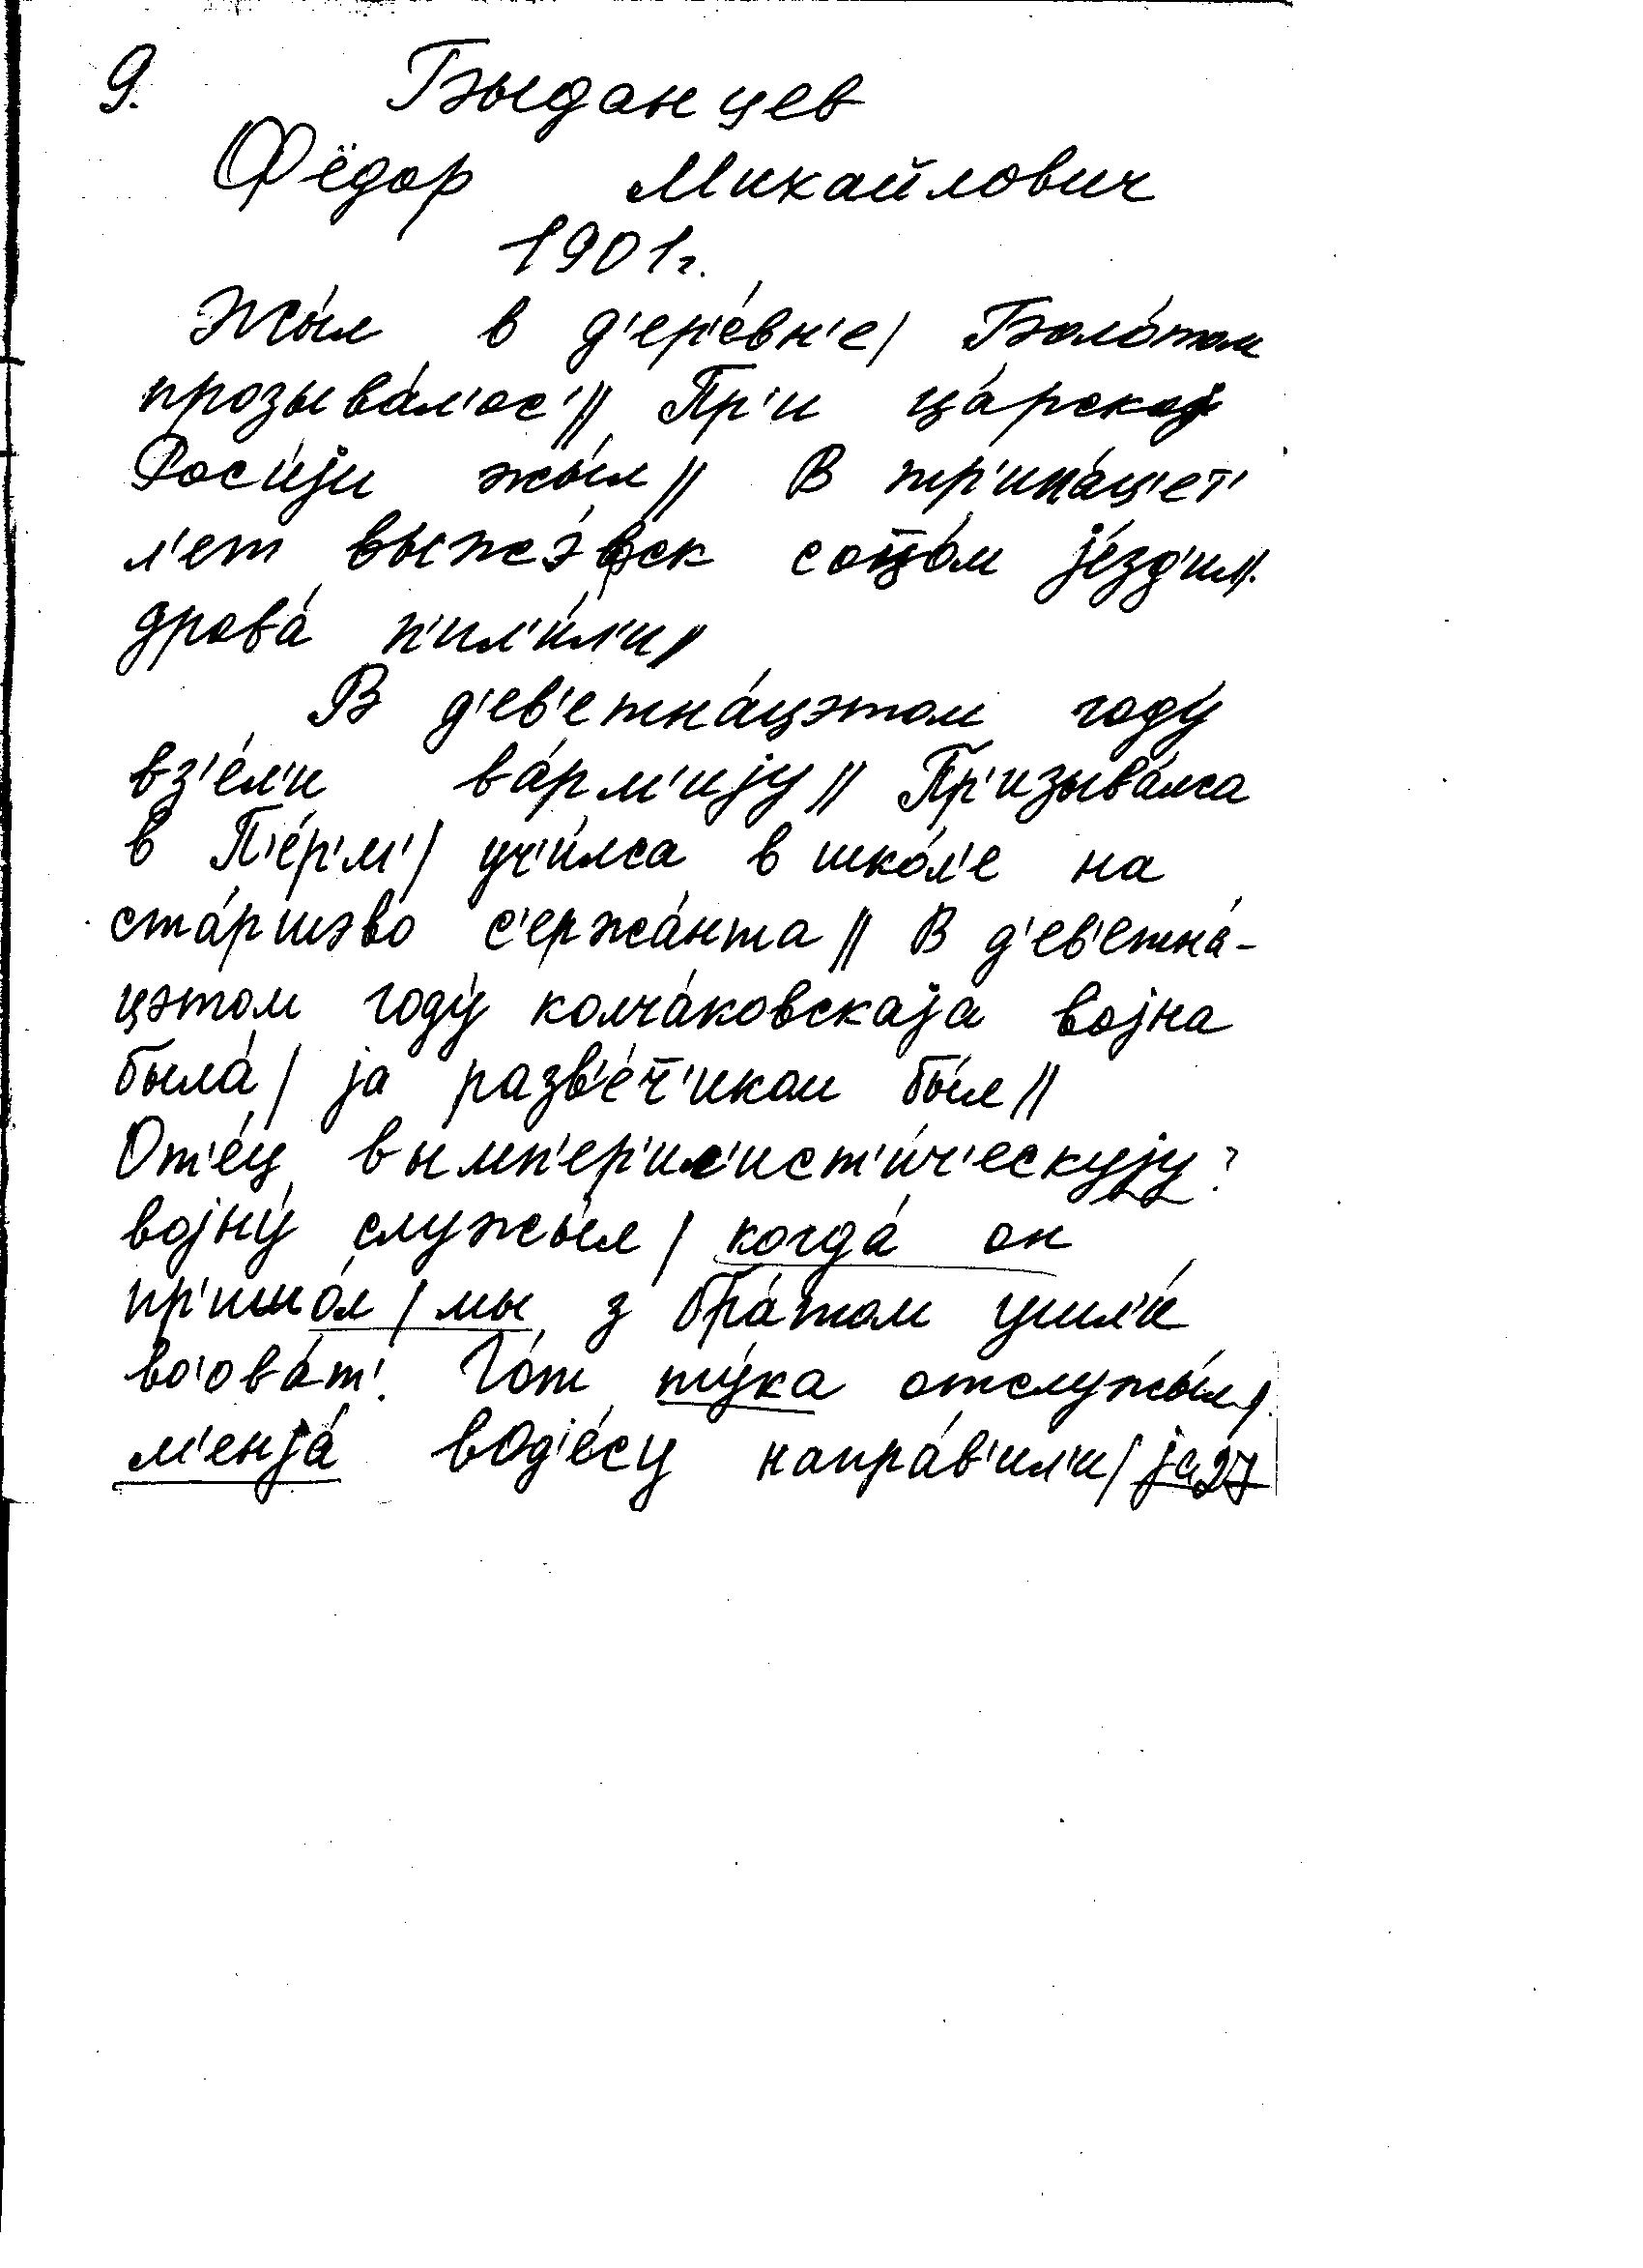 9. Быданцев
Фёдор Михайлович
1901г.
Жы́л в д'ер'е́вн'е/ Боло́том
прозыва́л'ос'// Пр'и ца́рској
Рос'и́jи жы́л// В тр'ина́ц'ет'
л'ет выжэ́вск соц̄о́м jе́зд'ил/.
дрова́ п'ил'и́л'и//
В д'ев'етна́цэтом году́
вз'е́л'и ва́рм'иjу// Пр'изыва́лса
в П'е́р'м'/ уч'и́лса в шко́л'е на
ста́ршэво с'ержа́нта// В д'ев'етна́-
цэтом году́ колча́ковскаjа воjна
была́/ jа разв'е́ч̄'иком бы́л//
От'е́ц вымп'ер'ил'ист'и́ч'ескуjу?
воjну́ служы́л/ когда́ он
пр'ишо́л/мы з бра́том ушл'и́
во'ова́т'. Го́т ту́ка отслужы́л/.
м'енjа́ вОд'е́су напра́в'ил'и/ jа 27